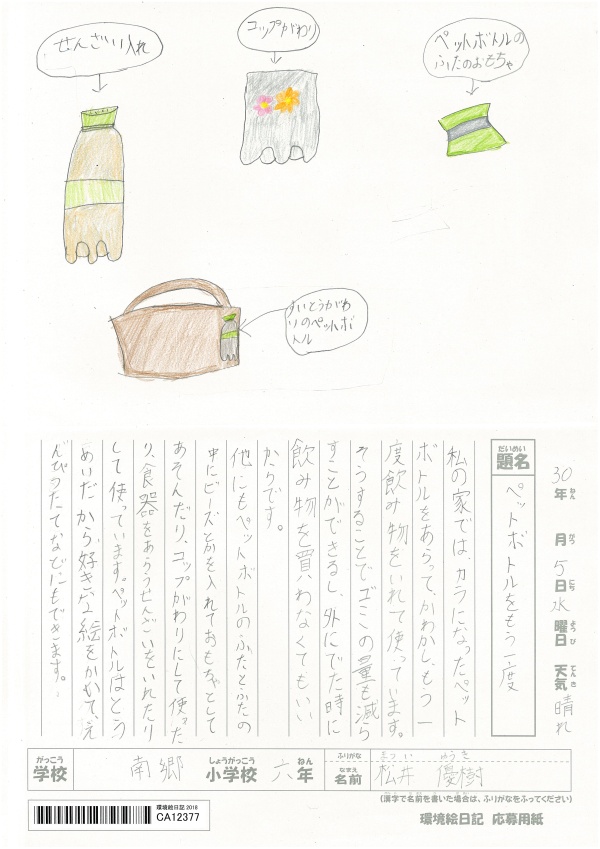 せんざい入れ
コップがわり
ペットボトルの
ふたのおもちゃ
すいとうがわ
りのペットボ
トル
30年 月 5日 水曜日 天気 晴れ
ねん がつ にち ようび てんき
だいめい
題名
ペットボトルをもう一度
私の家では、カラになったペット
ボトルをあらって、かわかし、もう一
度飲み物をいれて使っています。
そうすることでゴミの量も減ら
すことができるし、外にでた時に
飲み物を買わなくてもいい
からです。
他にもペットボトルのふたとふたの
中にビーズとかを入れておもちゃとして
あそんだり、コップがわりにして使った
り、食器をあらうせんざいをいれたり
して使っています。ペットボトルはとう
めいだから、好きな絵をかいて、え
んぴつたてなどにもできます。
がっこう
学校
南郷
しょうがっこう
小学校
六
ねん
年
ふりがな
まつい ゆうき
なまえ
名前
松井 優樹
(漢字で名前を書いた場合は、ふりがなをふってください)
環境絵日記 2018
CA12377
環境絵日記 応募用紙